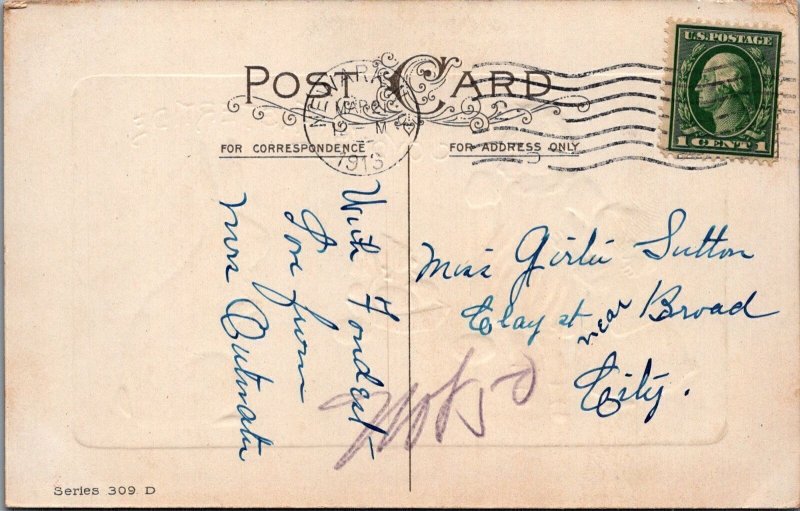 POST CARD
FOR CORRESPONDENCE
FOR ADDRESS ONLY
MAR 21
M
1913
U.S. POSTAGE
1 CENT 1
With Fondest
Love from
Mrs
Miss Girlie Sutton
Clay st near Broad
City.
Series 309 D